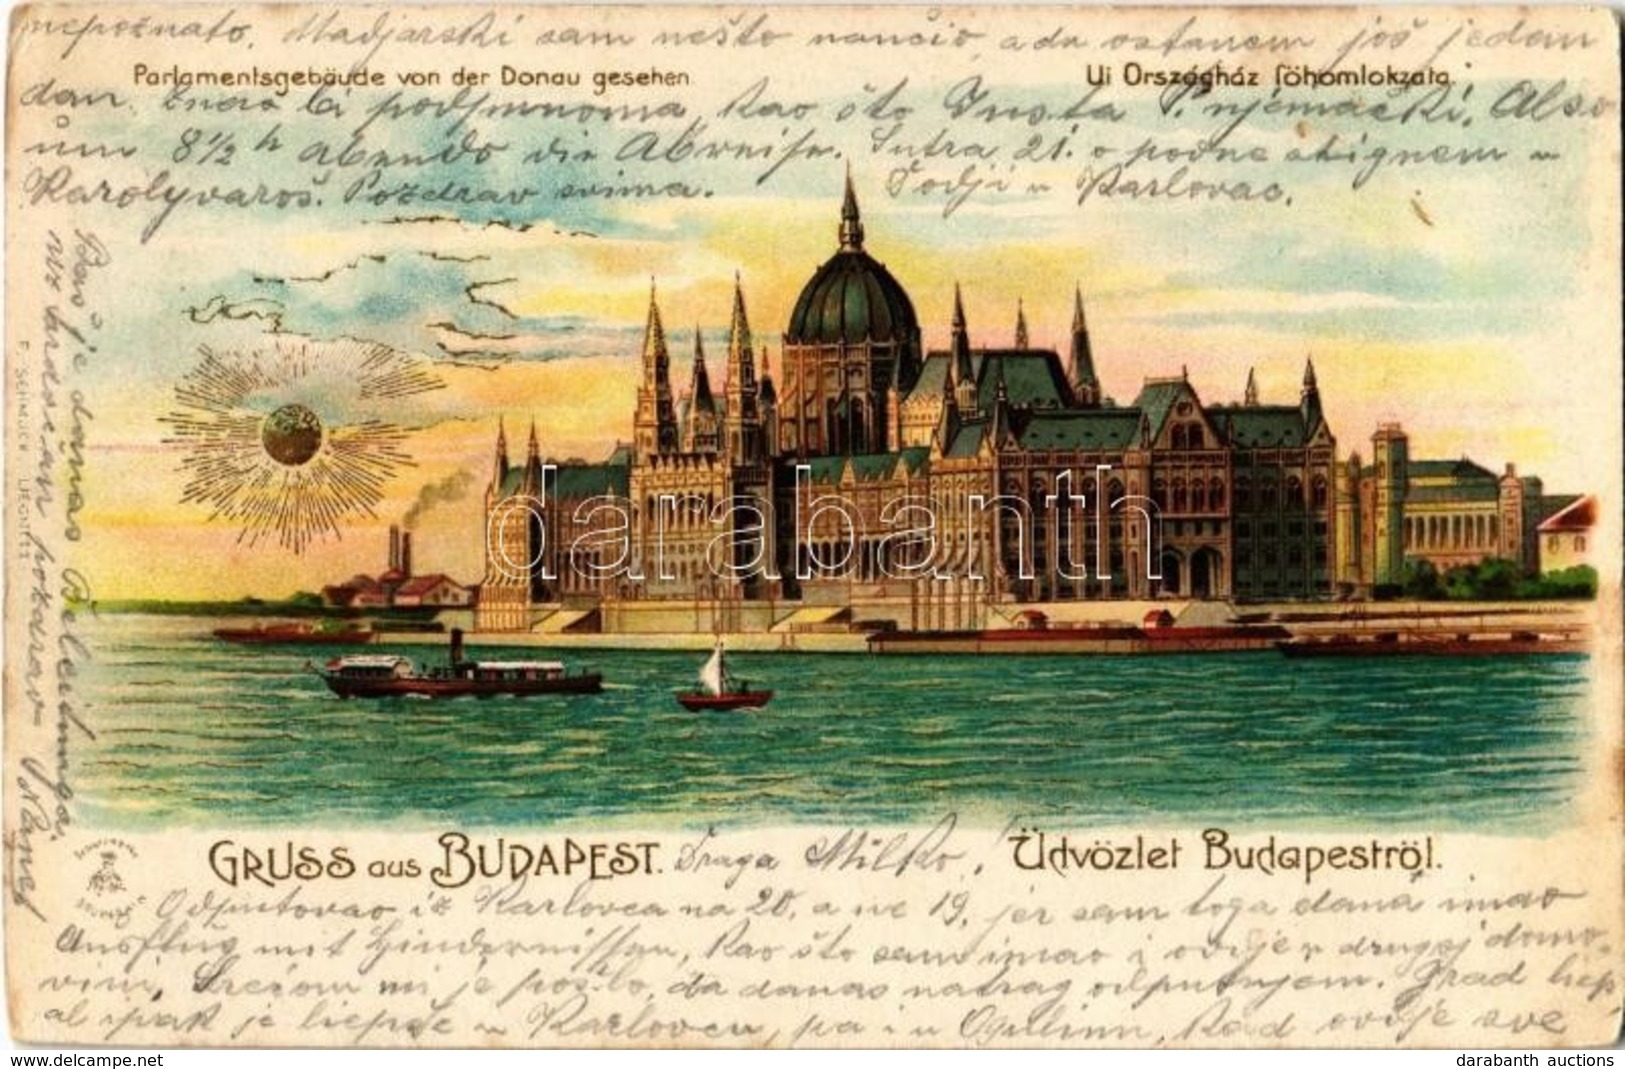 nepoznato. Madjarski sam nešto naučio, a da ostanem još jedan
Parlamentsgebäude von der Donau gesehen
Uj Országház főhomlokzata.
dan. znao bi podpunoma, kao što Justa P. njemački. Also
um 8 1/2 h abends die Abreise. Sutra 21. o podne stignem u
Karolyvaroš. Pozdrav svima. Dodji u Karlovac.
Baš je danas
uz srdačan pokozdrav
F. SCHMUCK LIEGNITZ
darabanth
GRUSS aus BUDAPEST. Draga Milko! Üdvözlet Budapestről.
Odputovao iz Karlovca na 20. a ne 19. jer sam toga dana imao
Ausflug mit Hindernissen, kao što sam imao i ovdje u drugoj domo-
vini. Srećom mi je pošlo, da danas natrag odputujem. Grad liep
al ipak je liepše u Karlovcu, pa i u Ogulinu, kad ovdje sve
www.delcampe.net
darabanth auctions